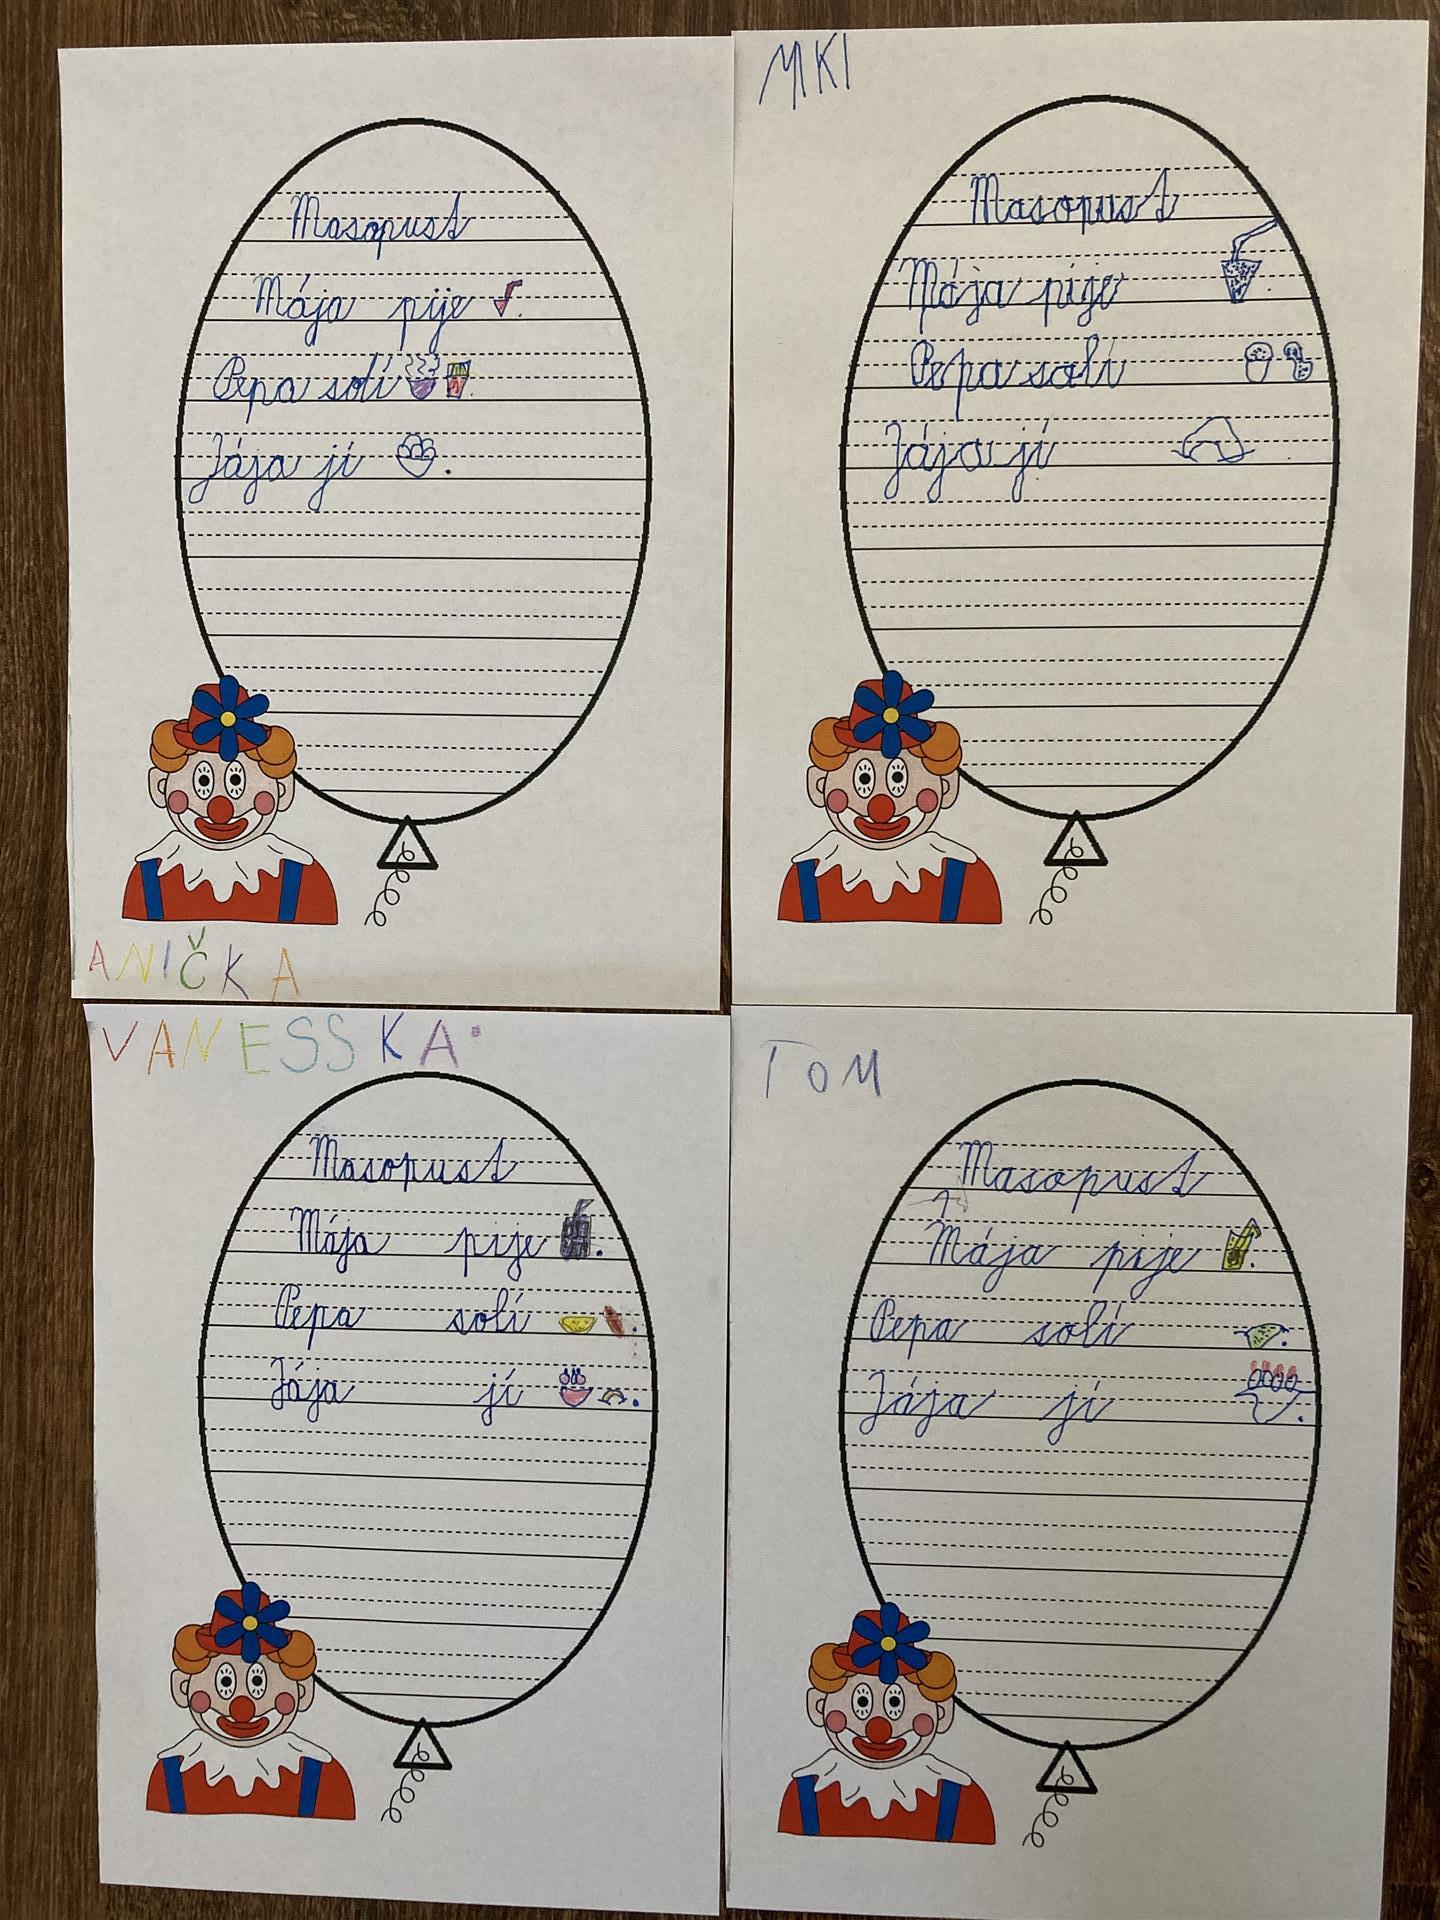 Masopust
Mája pije .
Pepa solí .
Jája jí .
ANIČKA
MKI
Masopust
Mája pije .
Pepa solí .
Jája jí .
VANESSKA
Masopust
Mája pije .
Pepa solí .
Jája jí .
TOM
Masopust
Mája pije .
Pepa solí .
Jája jí .